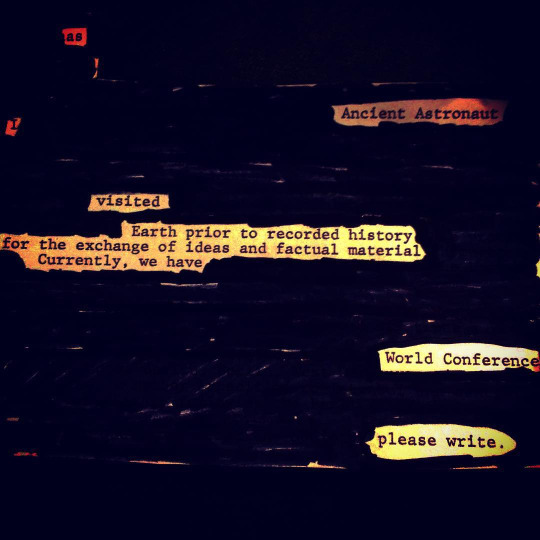 as
I
Ancient Astronaut
visited
Earth prior to recorded history
for the exchange of ideas and factual material
Currently, we have
World Conference
please write.